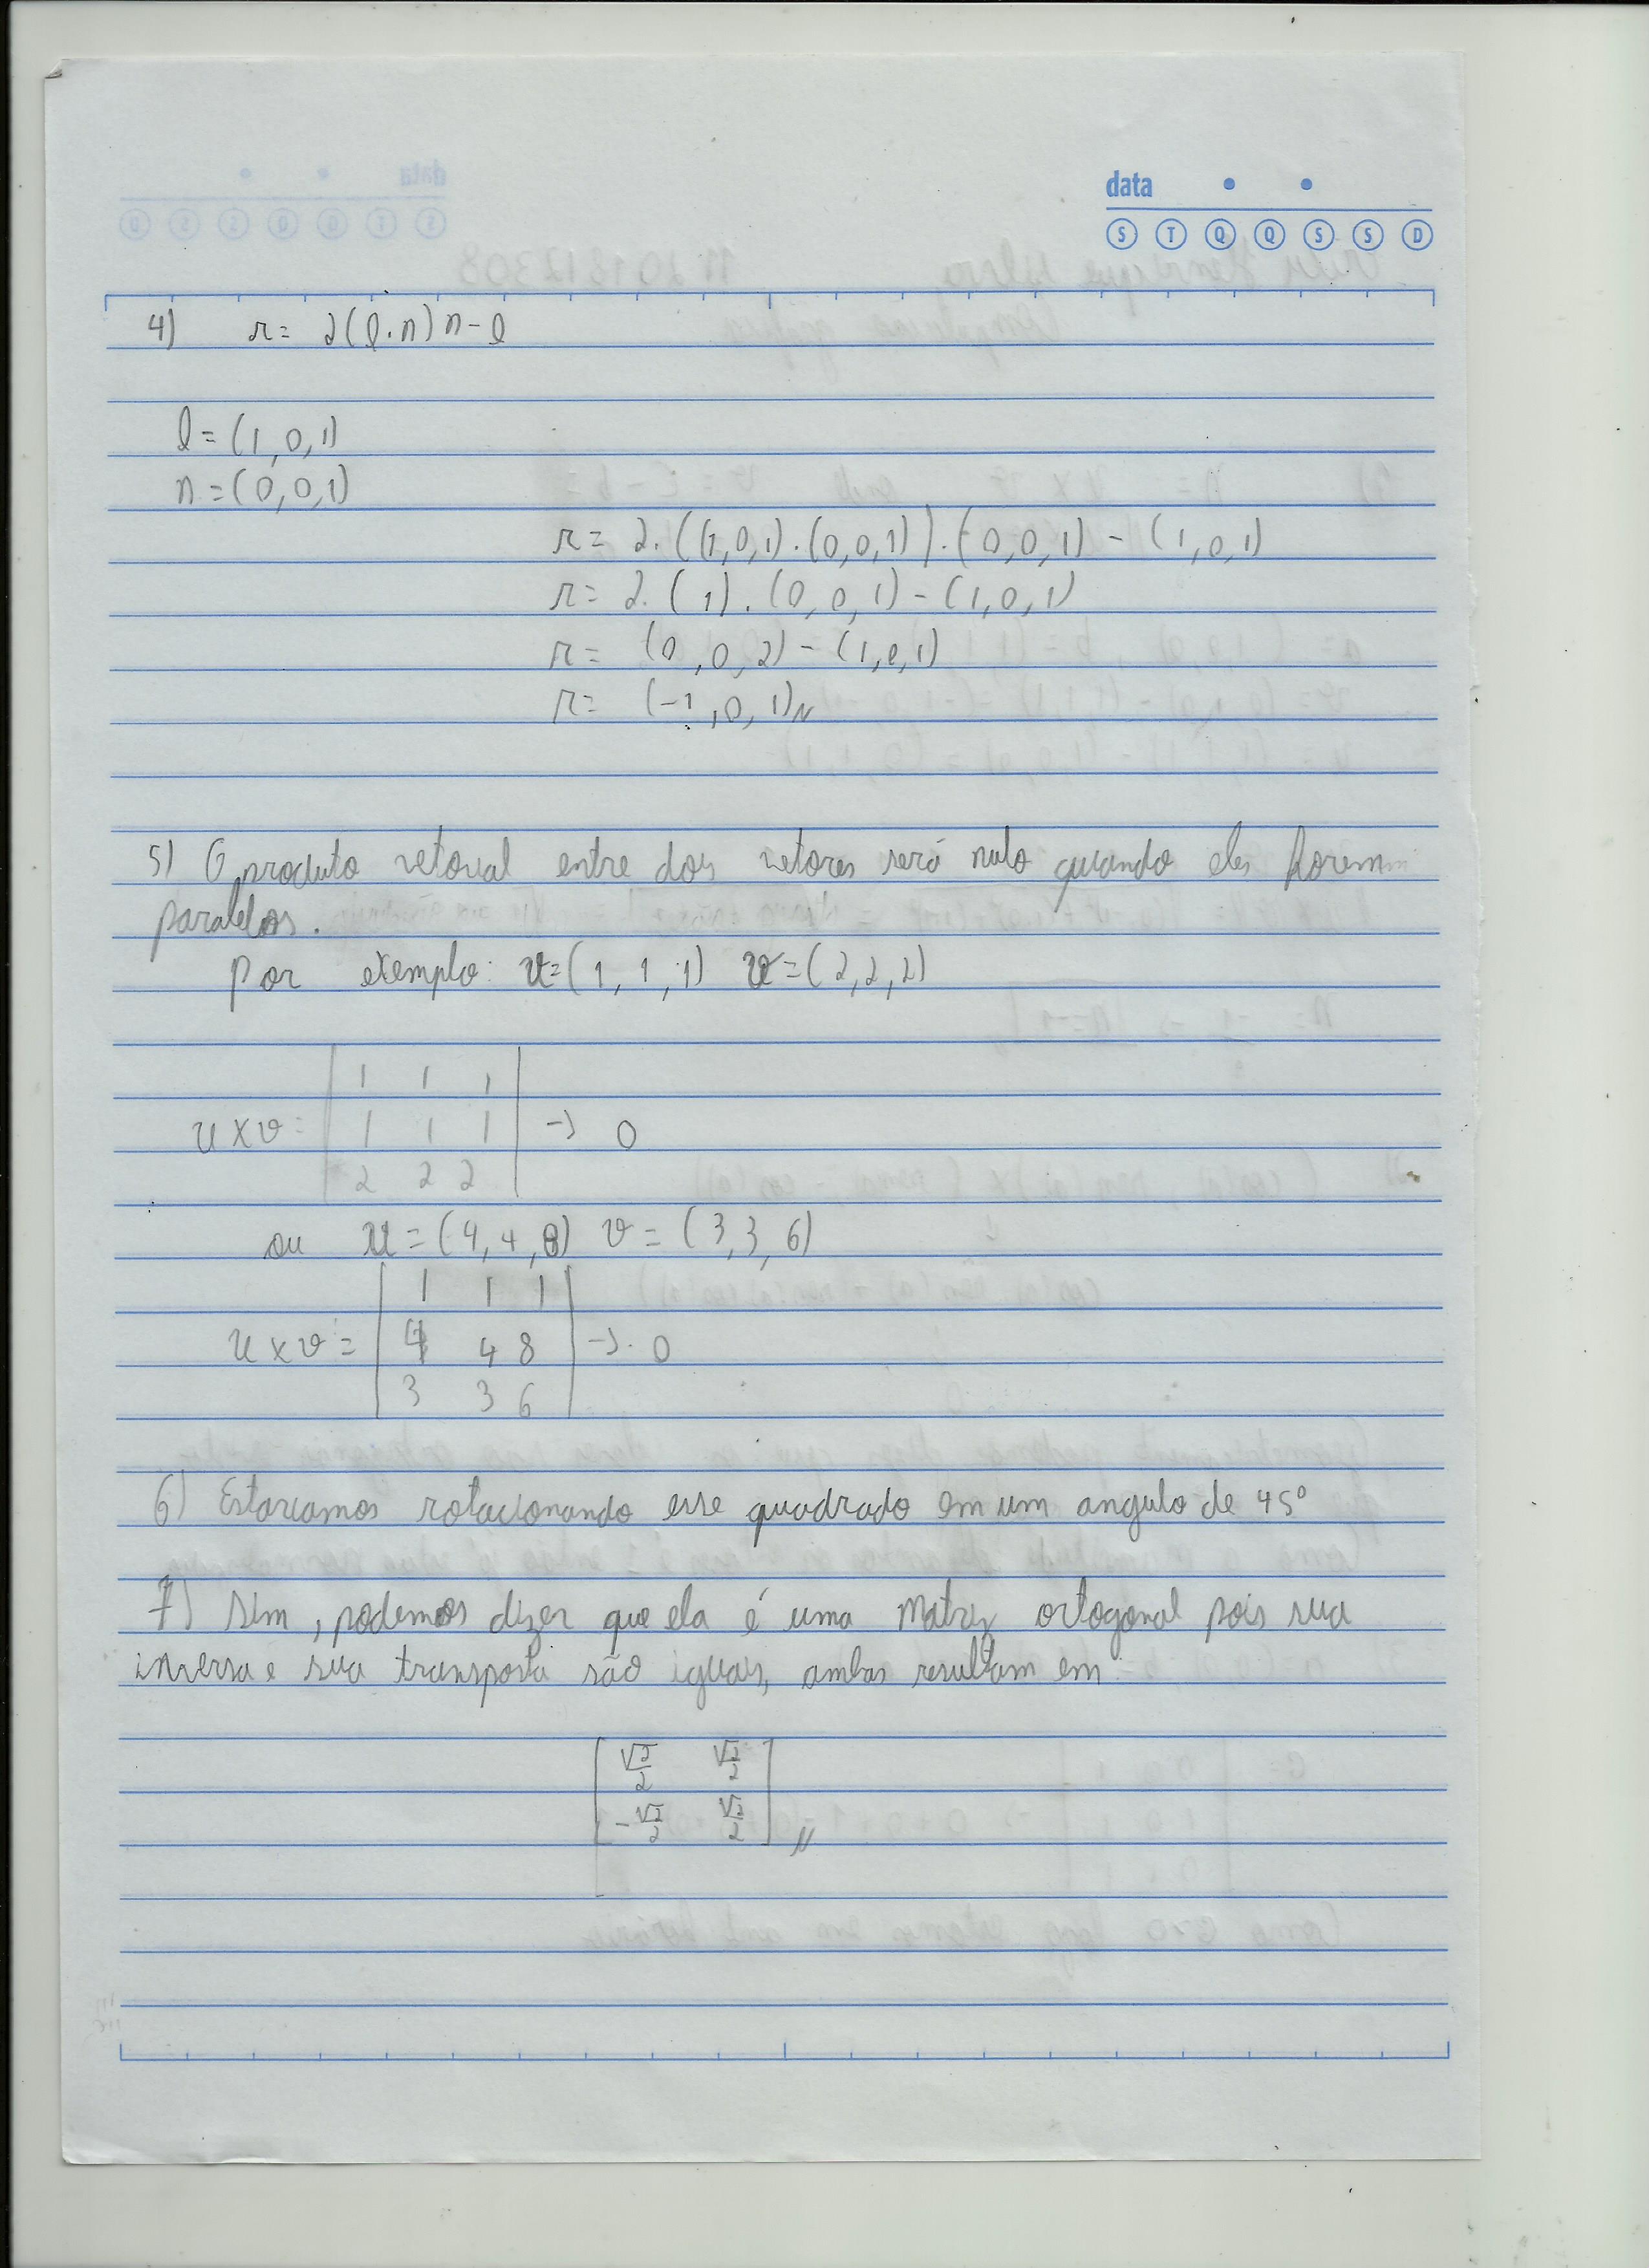 data
S T Q Q S S D
4) r= 2(l.n)n-l
l=(1,0,1)
n=(0,0,1)
r= 2.((1,0,1).(0,0,1)).(0,0,1)-(1,0,1)
r= 2.(1).(0,0,1)-(1,0,1)
r= (0,0,2)-(1,0,1)
r= (-1,0,1)
5) O produto vetorial entre dois vetores será nulo quando eles forem
paralelos.
Por exemplo: u=(1,1,1) v=(2,2,2)
1 1 1
u x v= 1 1 1 -> 0
2 2 2
ou u=(4,4,8) v=(3,3,6)
1 1 1
u x v= 4 4 8 -> 0
3 3 6
6) Estariamos rotacionando esse quadrado em um angulo de 45°
7) Sim, podemos dizer que ela é uma matriz ortogonal pois sua
inversa e sua transposta são iguais, ambas resultam em
√2/2 √2/2
-√2/2 √2/2